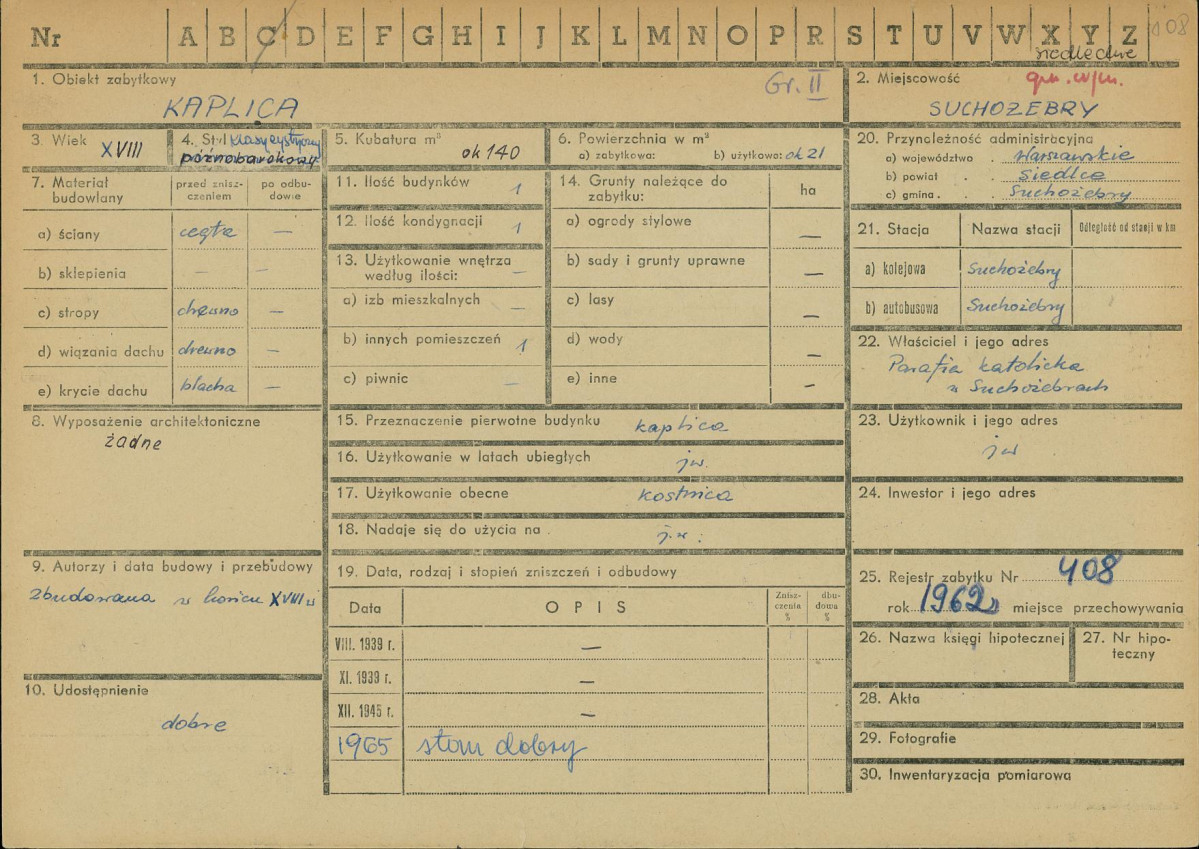 Nr A B C D E F G H I J K L M N O P R S T U V W X Y Z 108
siedleckie
1. Obiekt zabytkowy
Gr. II
KAPLICA
2. Miejscowość
SUCHOŻEBRY
3. Wiek
XVIII
4. Styl klasycystyczny
późnobarokowy
5. Kubatura m³
ok 140
6. Powierzchnia w m²
a) zabytkowa: b) użytkowa: ok 21
20. Przynależność administracyjna
a) województwo . Warszawskie
b) powiat . . Siedlce
c) gmina . . Suchożebry
7. Materiał budowlany
przed zniszczeniem
po odbudowie
a) ściany cegła —
b) sklepienia — —
c) stropy drewno —
d) wiązania dachu drewno —
e) krycie dachu blacha —
8. Wyposażenie architektoniczne
żadne
9. Autorzy i data budowy i przebudowy
zbudowana w końcu XVIII w
10. Udostępnienie
dobre
11. Ilość budynków 1
12. Ilość kondygnacji 1
13. Użytkowanie wnętrza
według ilości: —
a) izb mieszkalnych —
b) innych pomieszczeń 1
c) piwnic —
14. Grunty należące do
zabytku:
ha
a) ogrody stylowe —
b) sady i grunty uprawne —
c) lasy —
d) wody —
e) inne —
15. Przeznaczenie pierwotne budynku kaplica
16. Użytkowanie w latach ubiegłych jw.
17. Użytkowanie obecne kostnica
18. Nadaje się do użycia na j.w.
19. Data, rodzaj i stopień zniszczeń i odbudowy
Data OPIS
Zniszczenia %
dbudowa %
VIII. 1939 r. —
XI. 1939 r. —
XII. 1945 r. —
1965 stan dobry
21. Stacja Nazwa stacji Odległość od stacji w km
a) kolejowa Suchożebry
b) autobusowa Suchożebry
22. Właściciel i jego adres
Parafia katolicka
w Suchożebrach
23. Użytkownik i jego adres
jw
24. Inwestor i jego adres
25. Rejestr zabytku Nr 408
rok 1962 r miejsce przechowywania
26. Nazwa księgi hipotecznej
27. Nr hipoteczny
28. Akta
29. Fotografie
30. Inwentaryzacja pomiarowa